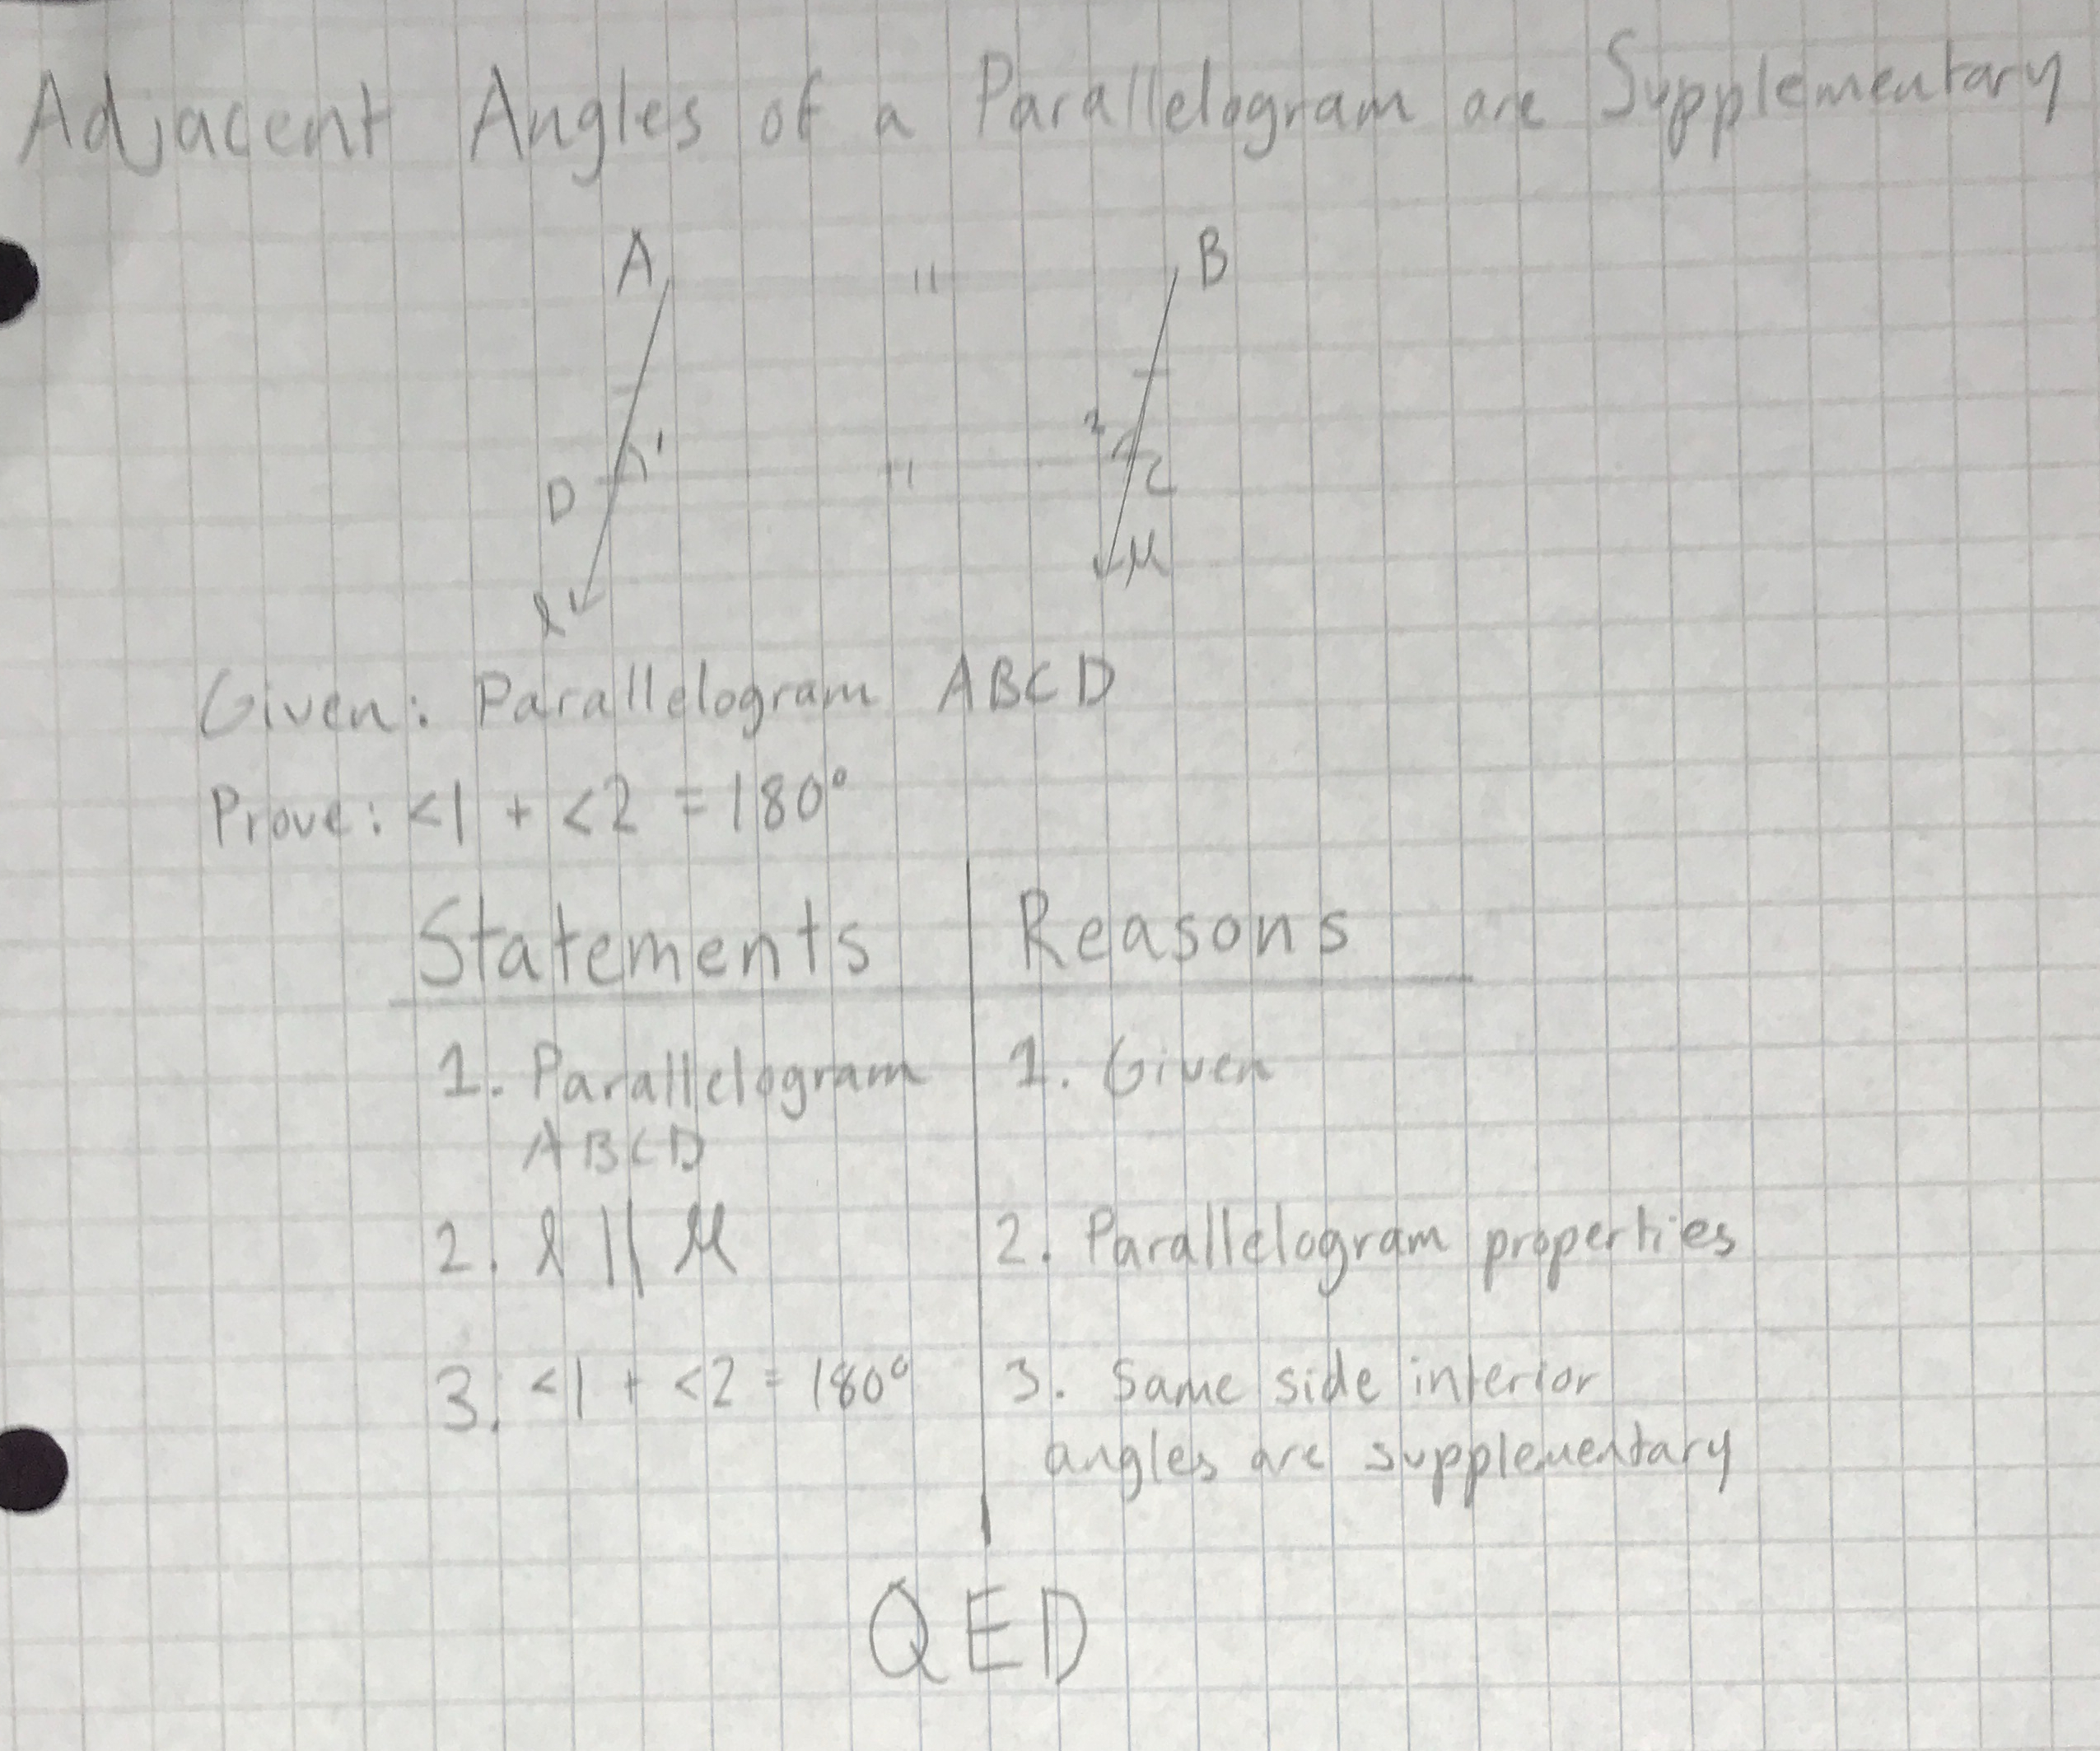 Adjacent Angles of a Parallelogram are Supplementary
A B
1 2
D C
l M
Given: Parallelogram ABCD
Prove: <1 + <2 = 180°
Statements Reasons
1. Parallelogram 1. Given
ABCD
2. l || M 2. Parallelogram properties
3. <1 + <2 = 180° 3. Same side interior
angles are supplementary
QED